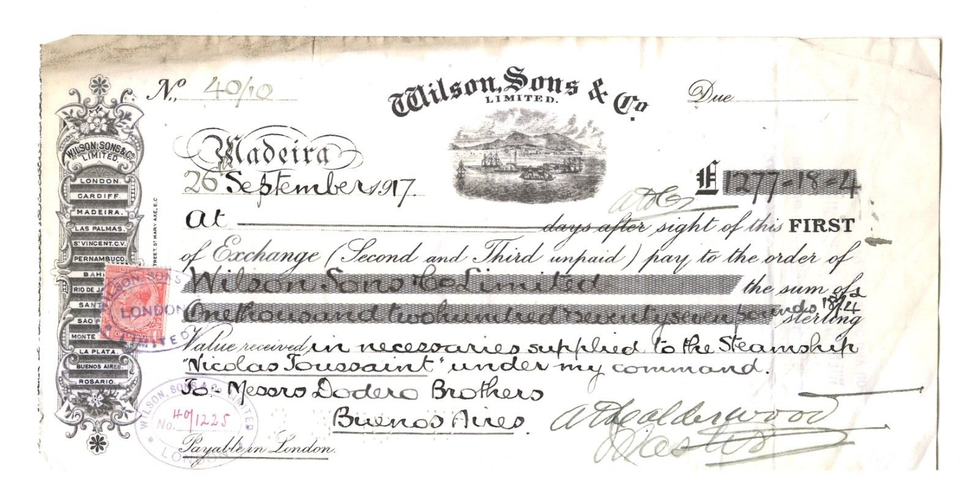 No. 40/10
Wilson, Sons & Co.
LIMITED.
Due
Madeira
26 September 1917.
£1277-18-4
At days after sight of this FIRST
of Exchange (Second and Third unpaid) pay to the order of
Wilson Sons & Co Limited the sum of
One thousand two hundred & seventy seven pounds, 18/4
sterling
Value received in necessaries supplied to the Steamship
"Nicolas Toussaint" under my command.
To Messrs Dodero Brothers
Buenos Aires.
Payable in London.
Calderwood
Master
WILSON, SONS & Co.
LIMITED.
LONDON.
CARDIFF.
MADEIRA.
LAS PALMAS.
ST VINCENT, C.V.
PERNAMBUCO.
BAHI
RIO DE JA
SANT
SAO P
MONTE
LA PLATA.
BUENOS AIRES
ROSARIO.
WILSON SONS
LONDON
LIMITED
WILSON, SONS & Co LIMITED
No. 40/1225
LO